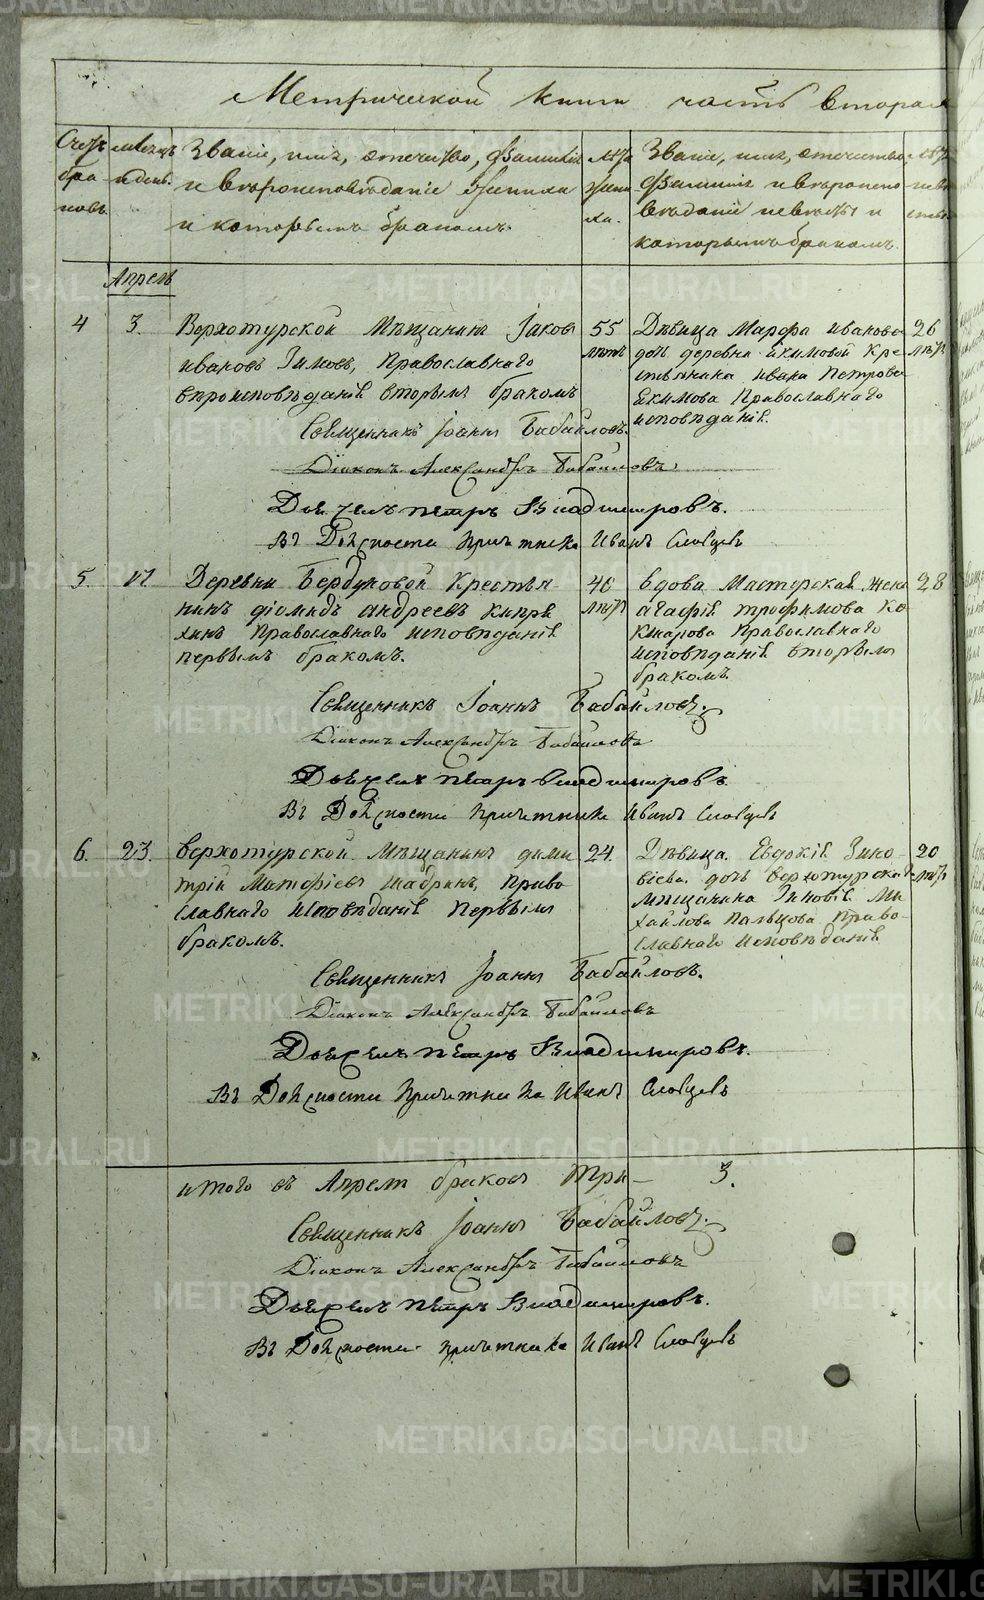 Метрической книги часть вторая
Счетъ браковъ
месяцъ и день.
Званіе, имя, отечество, фамилія
и вѣроисповѣданіе жениха
и которымъ бракомъ.
лѣта жениха.
Званіе, имя, отечество,
фамилія и вѣроиспо
вѣданіе невѣсты и
которымъ бракомъ.
лѣта невѣсты
Апрель
4
3.
Верхотурской Мѣщанинъ Іаковъ
ивановъ Зимовъ, Православнаго
вѣроисповѣданія вторымъ бракомъ
55
лѣтъ
Дѣвица Марфа иванова
дочь деревни Екимовой Кре
стьянина ивана Петрова
Екимова Православнаго
исповѣданія.
26
лѣтъ
Священникъ Іоаннъ Бабайловъ.
Діаконъ Александръ Бабайловъ.
Дьячекъ петръ Владимировъ.
Въ Должности причетника Иванъ Словцевъ
5.
17
Деревни Бердюковой Крестья
нинъ діомидъ андреевъ Кипрѣ
хинъ Православнаго исповѣданія
первымъ бракомъ.
40
лѣтъ
вдова Мастерская жена
агафія трофимова Ко
Православнаго
исповѣданія вторымъ
бракомъ.
28
Священникъ Іоаннъ Бабайловъ.
Діаконъ Александръ Бабайловъ
Дьячекъ петръ владимировъ.
Въ Должности причетника Иванъ Словцевъ
6.
23.
верхотурской Мѣщанинъ дими
трій Матфіевъ Шабринъ, Право
славнаго исповѣданія Первымъ
бракомъ.
24.
Дѣвица Евдокія Зино
віева дочь верхотурскаго
мѣщанина Зиновія Ми
хайлова Пальцова Право
славнаго исповѣданія
20
лѣтъ
Священникъ Іоаннъ Бабайловъ.
Діаконъ Александръ Бабайловъ
Дьячекъ петръ Владимировъ.
Въ Должности причетника Иванъ Словцевъ
итого въ Апрелѣ браковъ три — 3.
Священникъ Іоаннъ Бабайловъ.
Діаконъ Александръ Бабайловъ
Дьячекъ петръ Владимировъ.
Въ Должности причетника Иванъ Словцевъ
METRIKI.GASO-URAL.RU